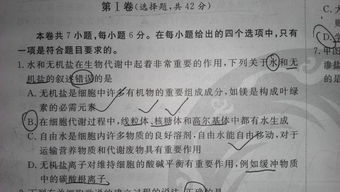 第Ⅰ卷(选择题,共 42 分)
本卷共 7 小题,每小题 6 分。在每小题给出的四个选项中,只有
一项是符合题目要求的。
1. 水和无机盐在生物代谢中起着非常重要的作用,下列关于水和无
机盐的叙述错误的是
A. 无机盐是细胞中许多有机物的重要组成成分,如镁是构成叶绿
素的必需元素
B. 在细胞代谢过程中,线粒体、核糖体和高尔基体中都有水生成
C. 自由水是细胞内许多物质的良好溶剂,自由水能自由移动,对于
运输营养物质和代谢废物具有重要作用
D. 无机盐离子对维持细胞的酸碱平衡有重要作用,例如缓冲物质
中的碳酸根离子